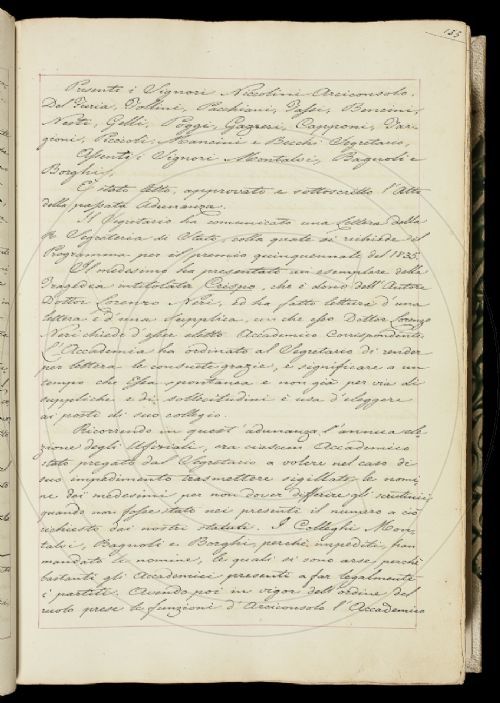 135
Presenti i Signori Niccolini Arciconsolo,
Del Furia, Follini, Pacchiani, Tassi, Bencini,
Nesti, Gelli, Poggi, Gazzeri, Capponi, Tar-
gioni, Rezzoli, Mancini e Becchi Segretario,
Assenti i Signori Montalvi, Bagnoli e
Borghi.
È stato letto, approvato e sottoscritto l'Atto
della passata Adunanza.
Il Segretario ha comunicato una Lettera della
R. Segreteria di Stato, colla quale si richiede il
Programma per il premio quinquennale del 1835.
Il medesimo ha presentato un esemplare della
Tragedia intitolata Crispo, che è dono dell'Autore
Dottor Lorenzo Neri, ed ha fatto lettura d'una
lettera e d'una supplica, con che esso Dottor Lorenzo
Neri chiede d'esser eletto Accademico Corrispondente.
L'Accademia ha ordinato al Segretario di render
per lettera le consuete grazie, e significare a un
tempo che Essa spontanea e non già per via di
suppliche e di sollecitudini è usa d'eleggere
ai posti di suo collegio.
Ricorrendo in quest'adunanza l'annua ele-
zione degli Ufiziali, era ciascun Accademico
stato pregato dal Segretario a volere nel caso di
suo impedimento trasmettere sigillate le nomi-
ne dei medesimi per non dover differire gli scrutinii,
quando non fosse stato nei presenti il numero a ciò
richiesto dai nostri statuti. I Colleghi Mon-
talvi, Bagnoli e Borghi, perchè impediti, han
mandato le nomine, le quali si sono arse perchè
bastanti gli Accademici presenti a far legalmente
i partiti. Avendo poi in vigor dell'ordine del
ruolo prese le funzioni d'Arciconsolo l'Accademico